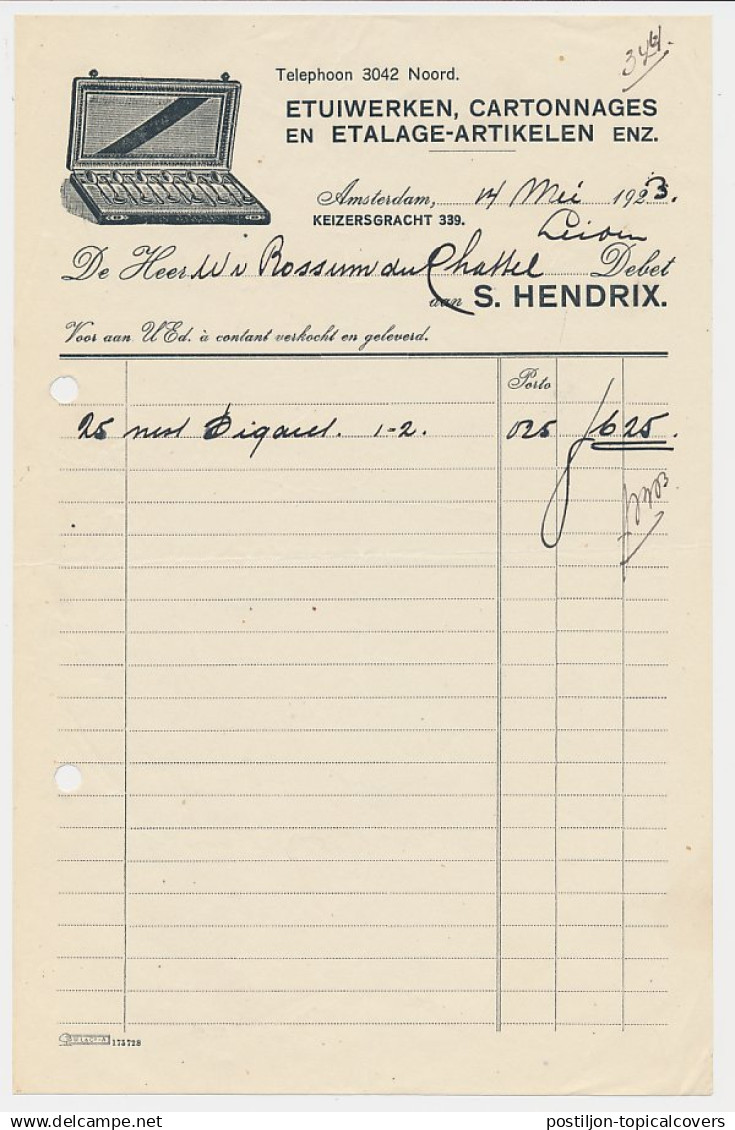 344.
Telephoon 3042 Noord.
ETUIWERKEN, CARTONNAGES
EN ETALAGE-ARTIKELEN ENZ.
Amsterdam, 14 Mei 1923.
KEIZERSGRACHT 339.
De Heer W v Rossum du Chattel Debet
aan S. HENDRIX.
Voor aan UEd. à contant verkocht en geleverd.
Porto
25 nest 1-2. 025 f 625.
175728
postiljon-topicalcovers